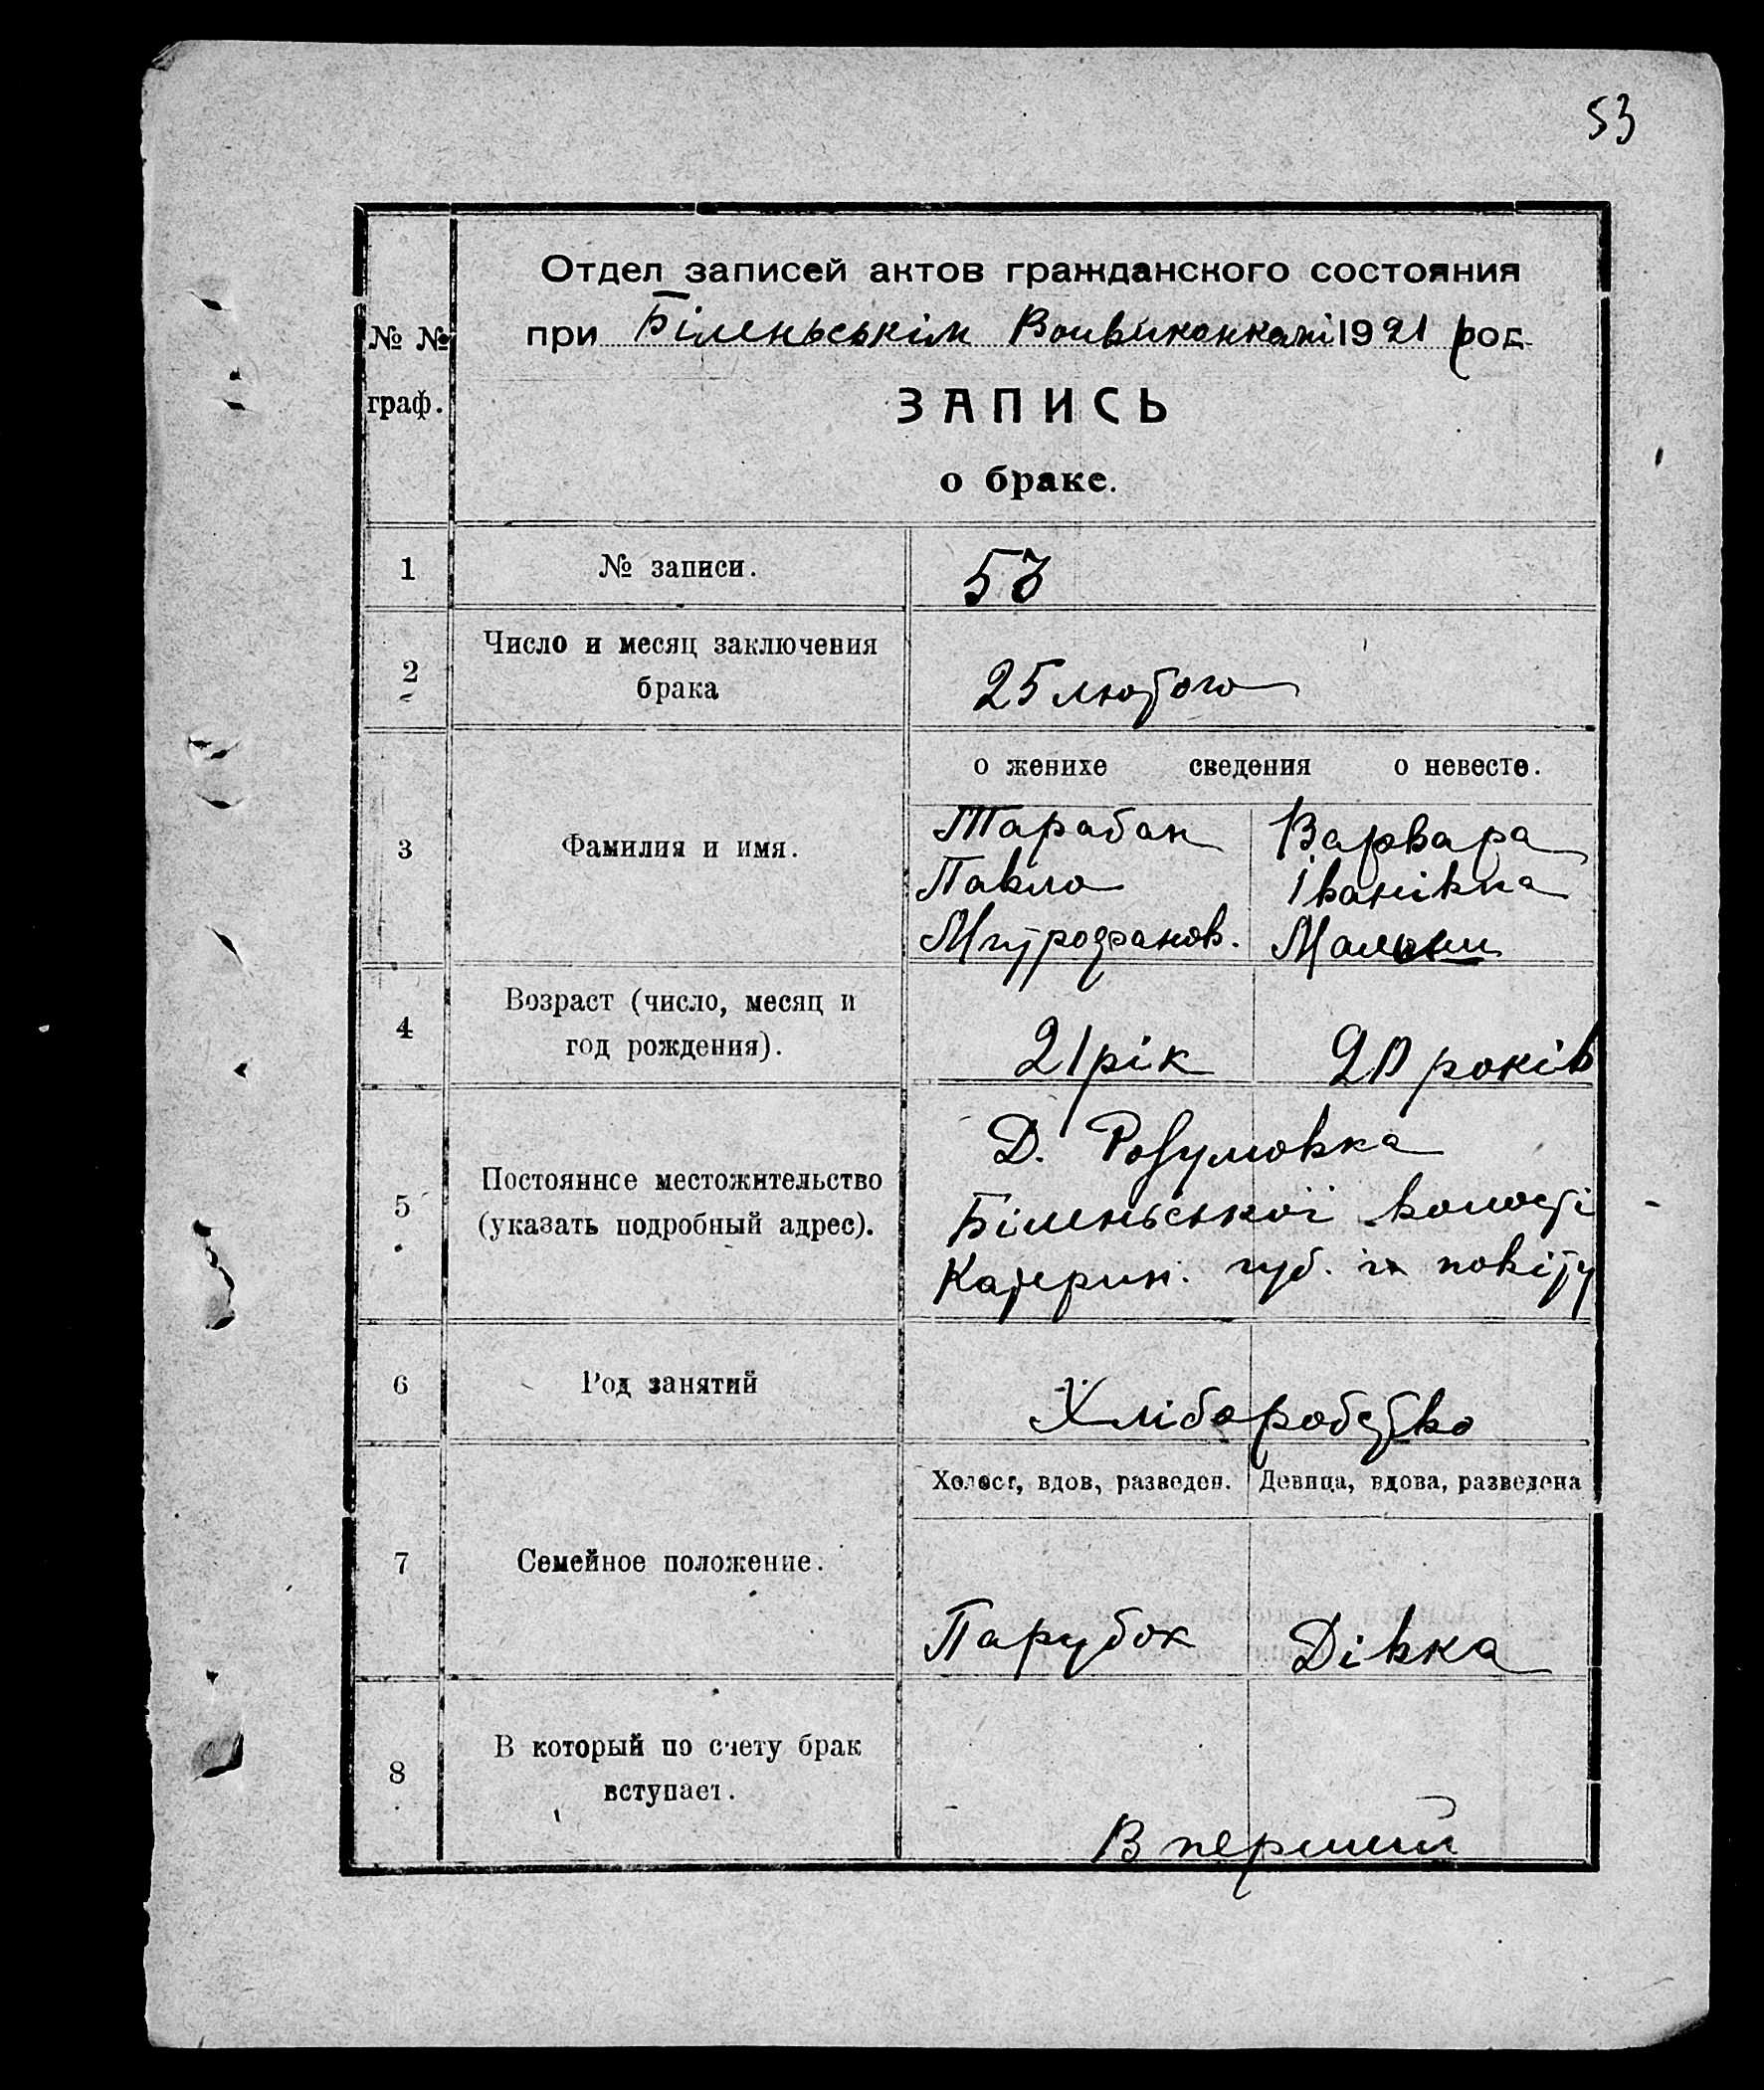 53
Отдел записей актов гражданского состояния
№ №
граф.
при Біленьськім Волвиконкомі 1921 год
ЗАПИСЬ
о браке.
1 № записи. 53
2 Число и месяц заключения
брака
25 лютого
о женихе сведения о невесте.
3 Фамилия и имя.
Тарабан Варвара
Павло Іванівна
Митрофанов.
4 Возраст (число, месяц и
год рождения).
21 рік 20 років
5 Постоянное местожительство
(указать подробный адрес).
Д. Розумовка
Біленьської волості
Катерин. губ. і повіту
6 Род занятий Хліборобство
Холост, вдов, разведен. Девица, вдова, разведена
7 Семейное положение.
Парубок Дівка
8 В который по счету брак
вступает.
В перший